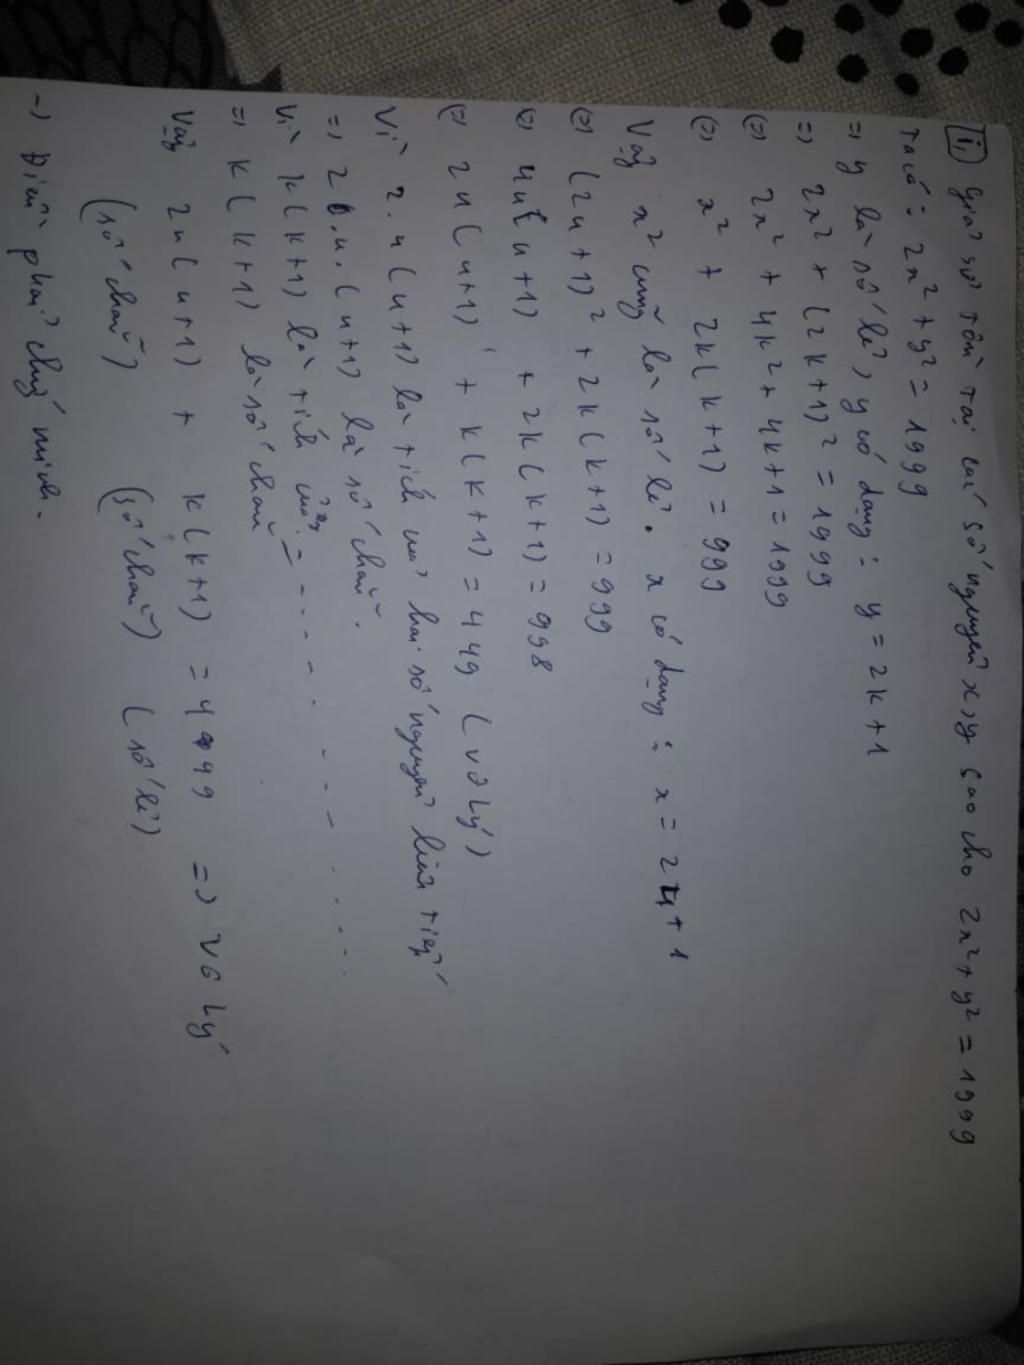 1) giả sử tồn tại các số nguyên x, y sao cho 2x² + y² = 1999
Ta có: 2x² + y² = 1999
=> y là số lẻ, y có dạng: y = 2k + 1
=> 2x² + (2k + 1)² = 1999
(=) 2x² + 4k² + 4k + 1 = 1999
(=) x² + 2k(k + 1) = 999
Vậy x² cũng là số lẻ. x có dạng: x = 2u + 1
(=) (2u + 1)² + 2k(k + 1) = 999
(=) 4u(u + 1) + 2k(k + 1) = 998
(=) 2u(u+1) + k(k+1) = 449 (vô lý)
Vì 2.u(u+1) là tích của hai số nguyên liên tiếp
=> 2.u.(u+1) là số chẵn.
Vì k(k+1) là tích của = - - - . - - - . - .
=> k(k+1) là số chẵn
Vậy 2u(u+1) + k(k+1) = 499 => vô lý
(số chẵn) (số chẵn) (số lẻ)
-) Điều phải chứng minh.